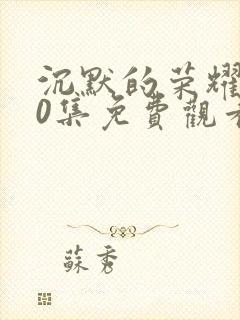 沉默的荣耀
0集免費觀看
蘇秀